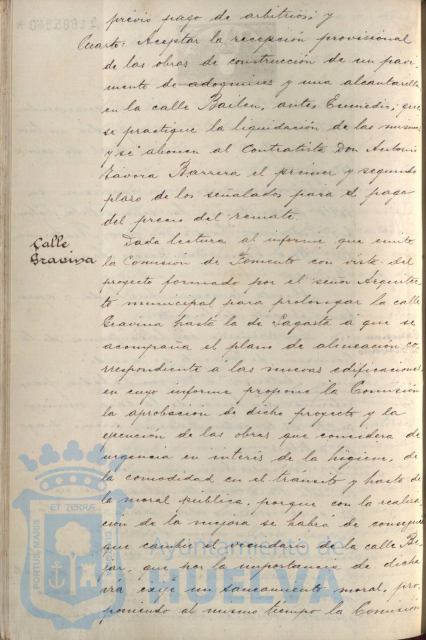 previo pago de arbitrios; y
Cuarto: Aceptar la recepción provisional
de las obras de construcción de un pavi
mento de adoquines y una alcantarilla
en la calle Bailen, antes Enmedio, que
se practique la liquidación de las mismas
y se abonen al Contratista Don Antonio
Távora Barrera el primer y segundo
plazo de los señalados para el pago
del precio del remate.
Calle
Gravina
Dada lectura al informe que emite
la Comisión de Fomento con vista del
proyecto formado por el señor Arquitec
to municipal para prolongar la calle
Gravina hasta la de Sagasta á que se
acompaña el plano de alineación co
rrespondiente a las nuevas edificaciones
en cuyo informe propone la Comisión
la aprobación de dicho proyecto y la
ejecución de las obras que considera de
urgencia en interés de la higiene, de
la comodidad en el tránsito y hasta de
la moral pública, porque con la realiza
ción de la mejora se habrá de conseguir
que cambie el vecindario de la calle
que por la importancia de dicha
vía exige un saneamiento moral, pro
poniendo al mismo tiempo la Comisión
PORTUS MARIS ET TERRÆ CUSTODIO
Ayuntamiento de
HUELVA